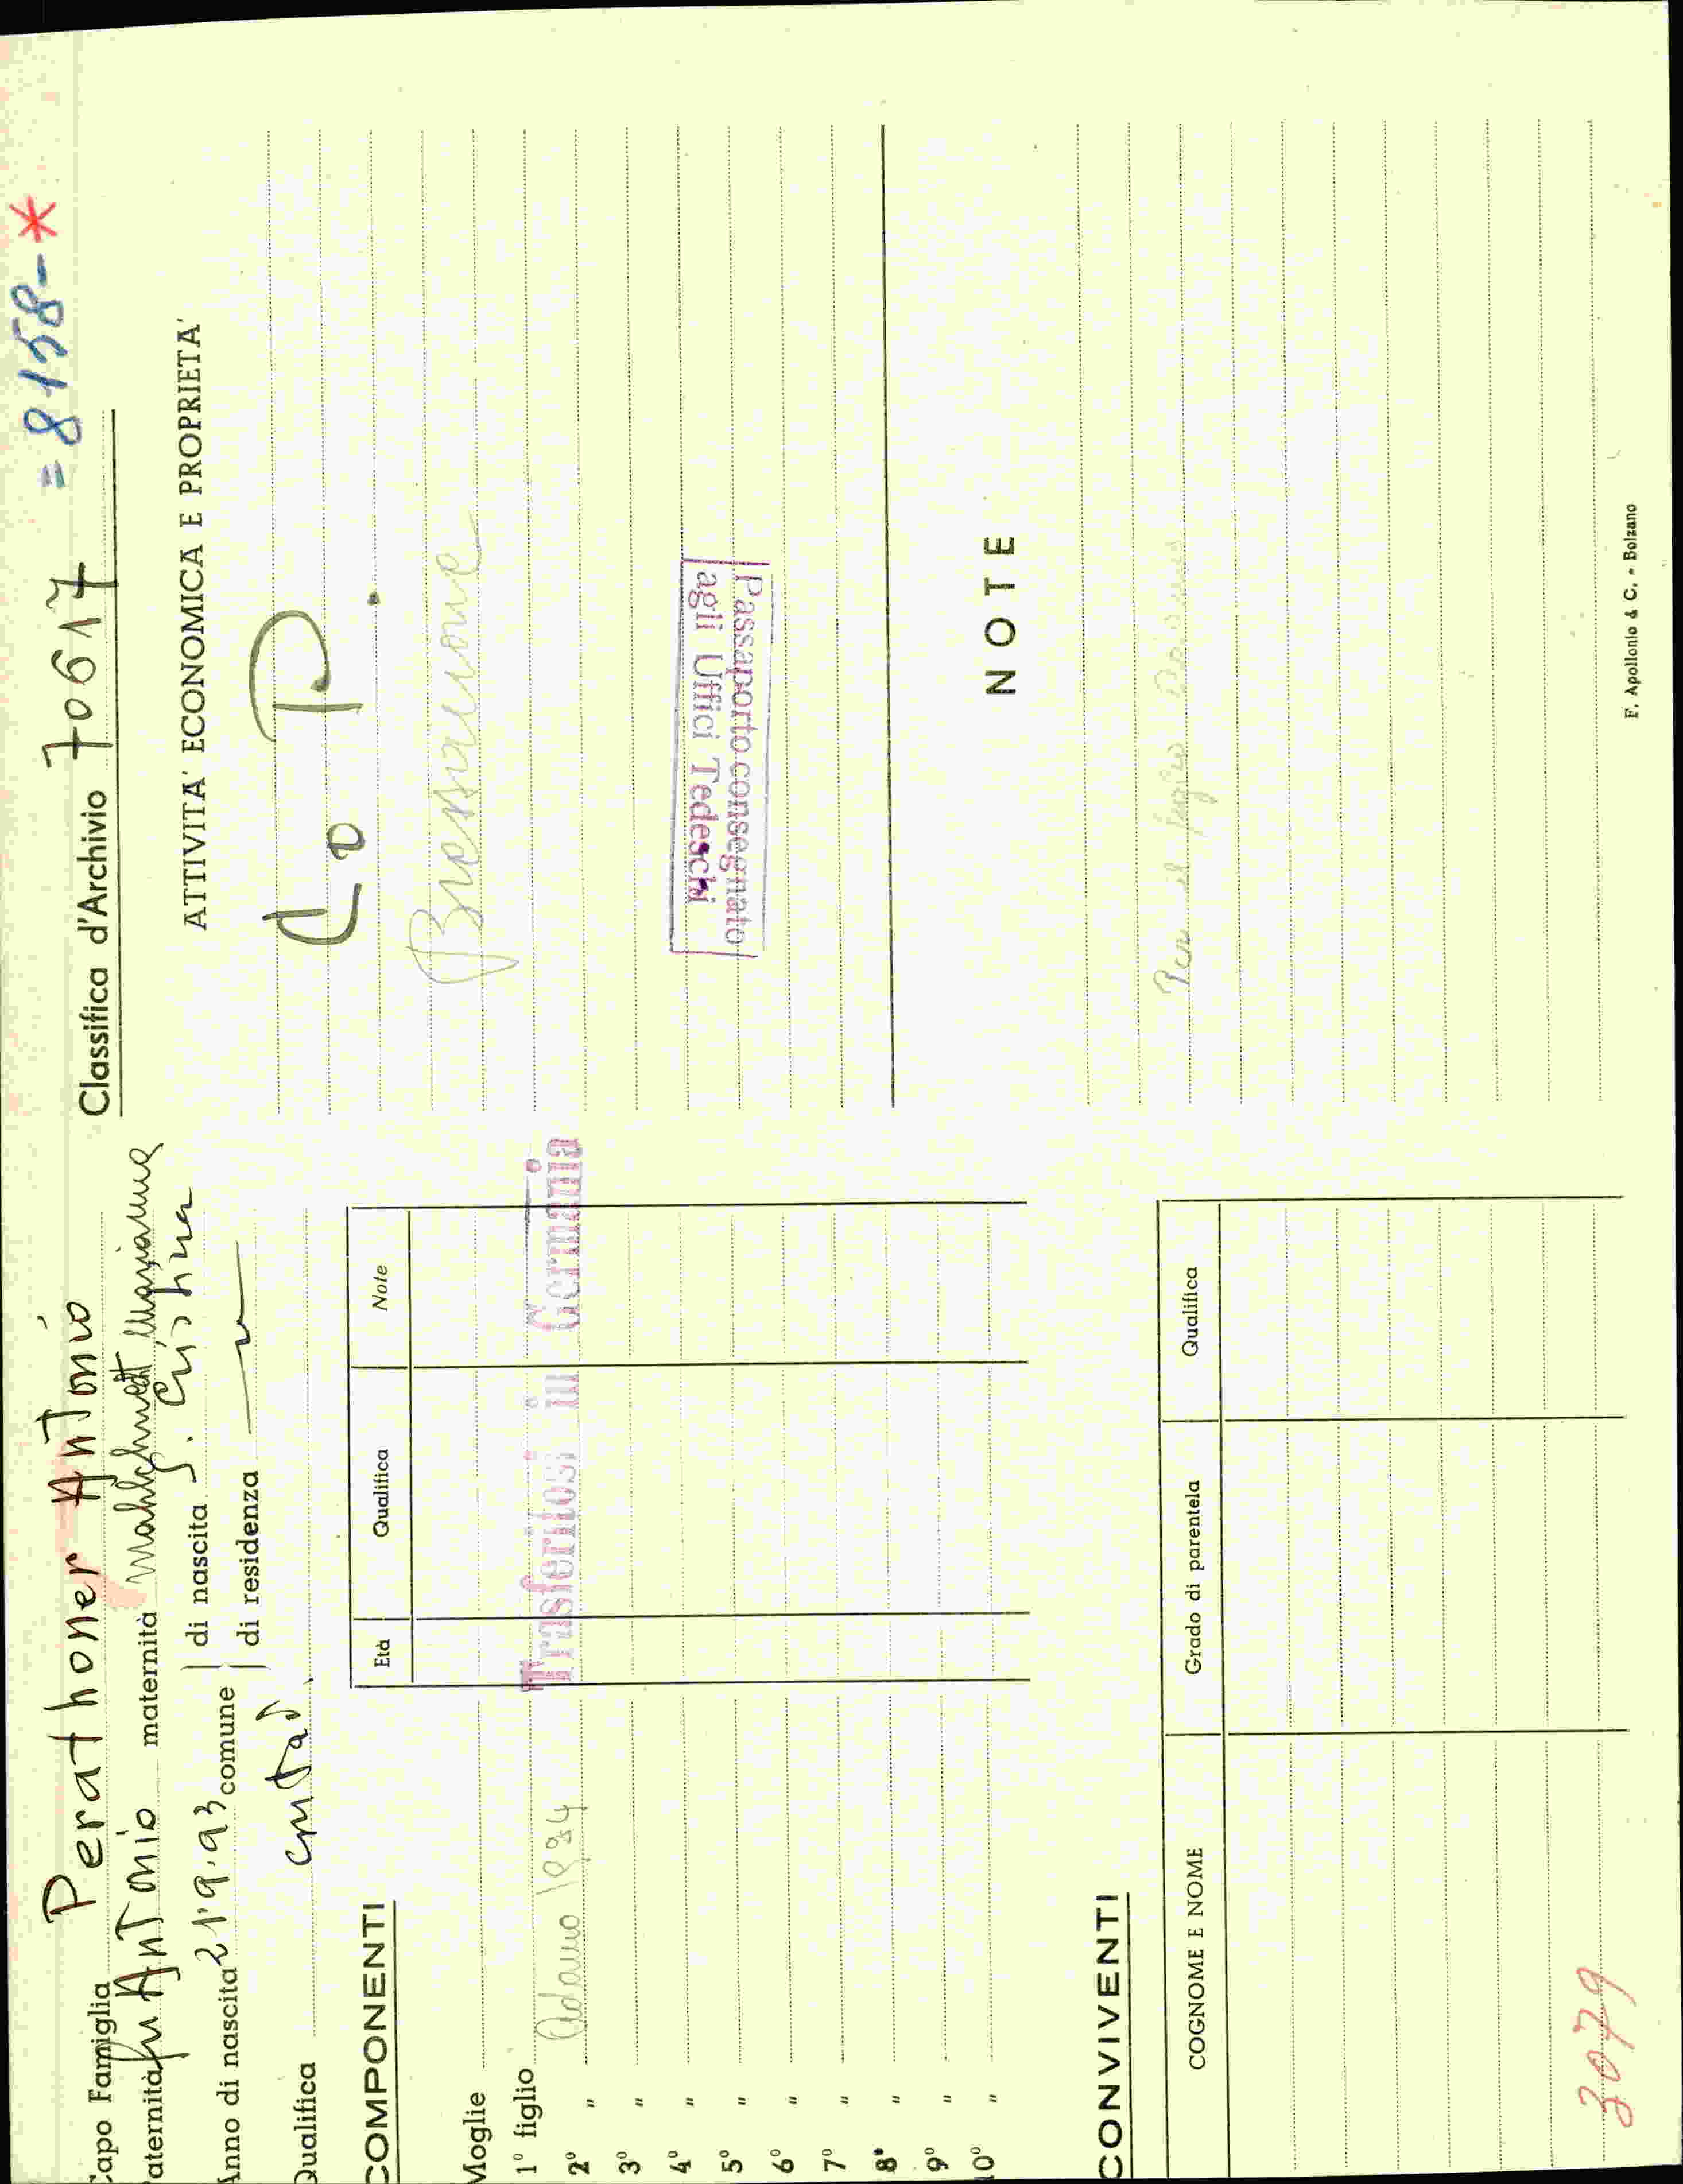 Capo Famiglia Perathoner Antonio
Paternità fu Antonio maternità Mahlknecht Marianna
Anno di nascita 21.9.93 comune di nascita S. Cristina
di residenza
Qualifica
COMPONENTI
Età Qualifica Note
Moglie
1° figlio Adamo 1934
Trasferitosi in Germania
2° "
3° "
4° "
5° "
6° "
7° "
8° "
9° "
10° "
CONVIVENTI
COGNOME E NOME Grado di parentela Qualifica
3079
Classifica d'Archivio 70617 = 8158-*
ATTIVITA' ECONOMICA E PROPRIETA'
Co P.
Passaporto consegnato
agli Uffici Tedeschi
NOTE
Per il
F. Apollonio & C. - Bolzano